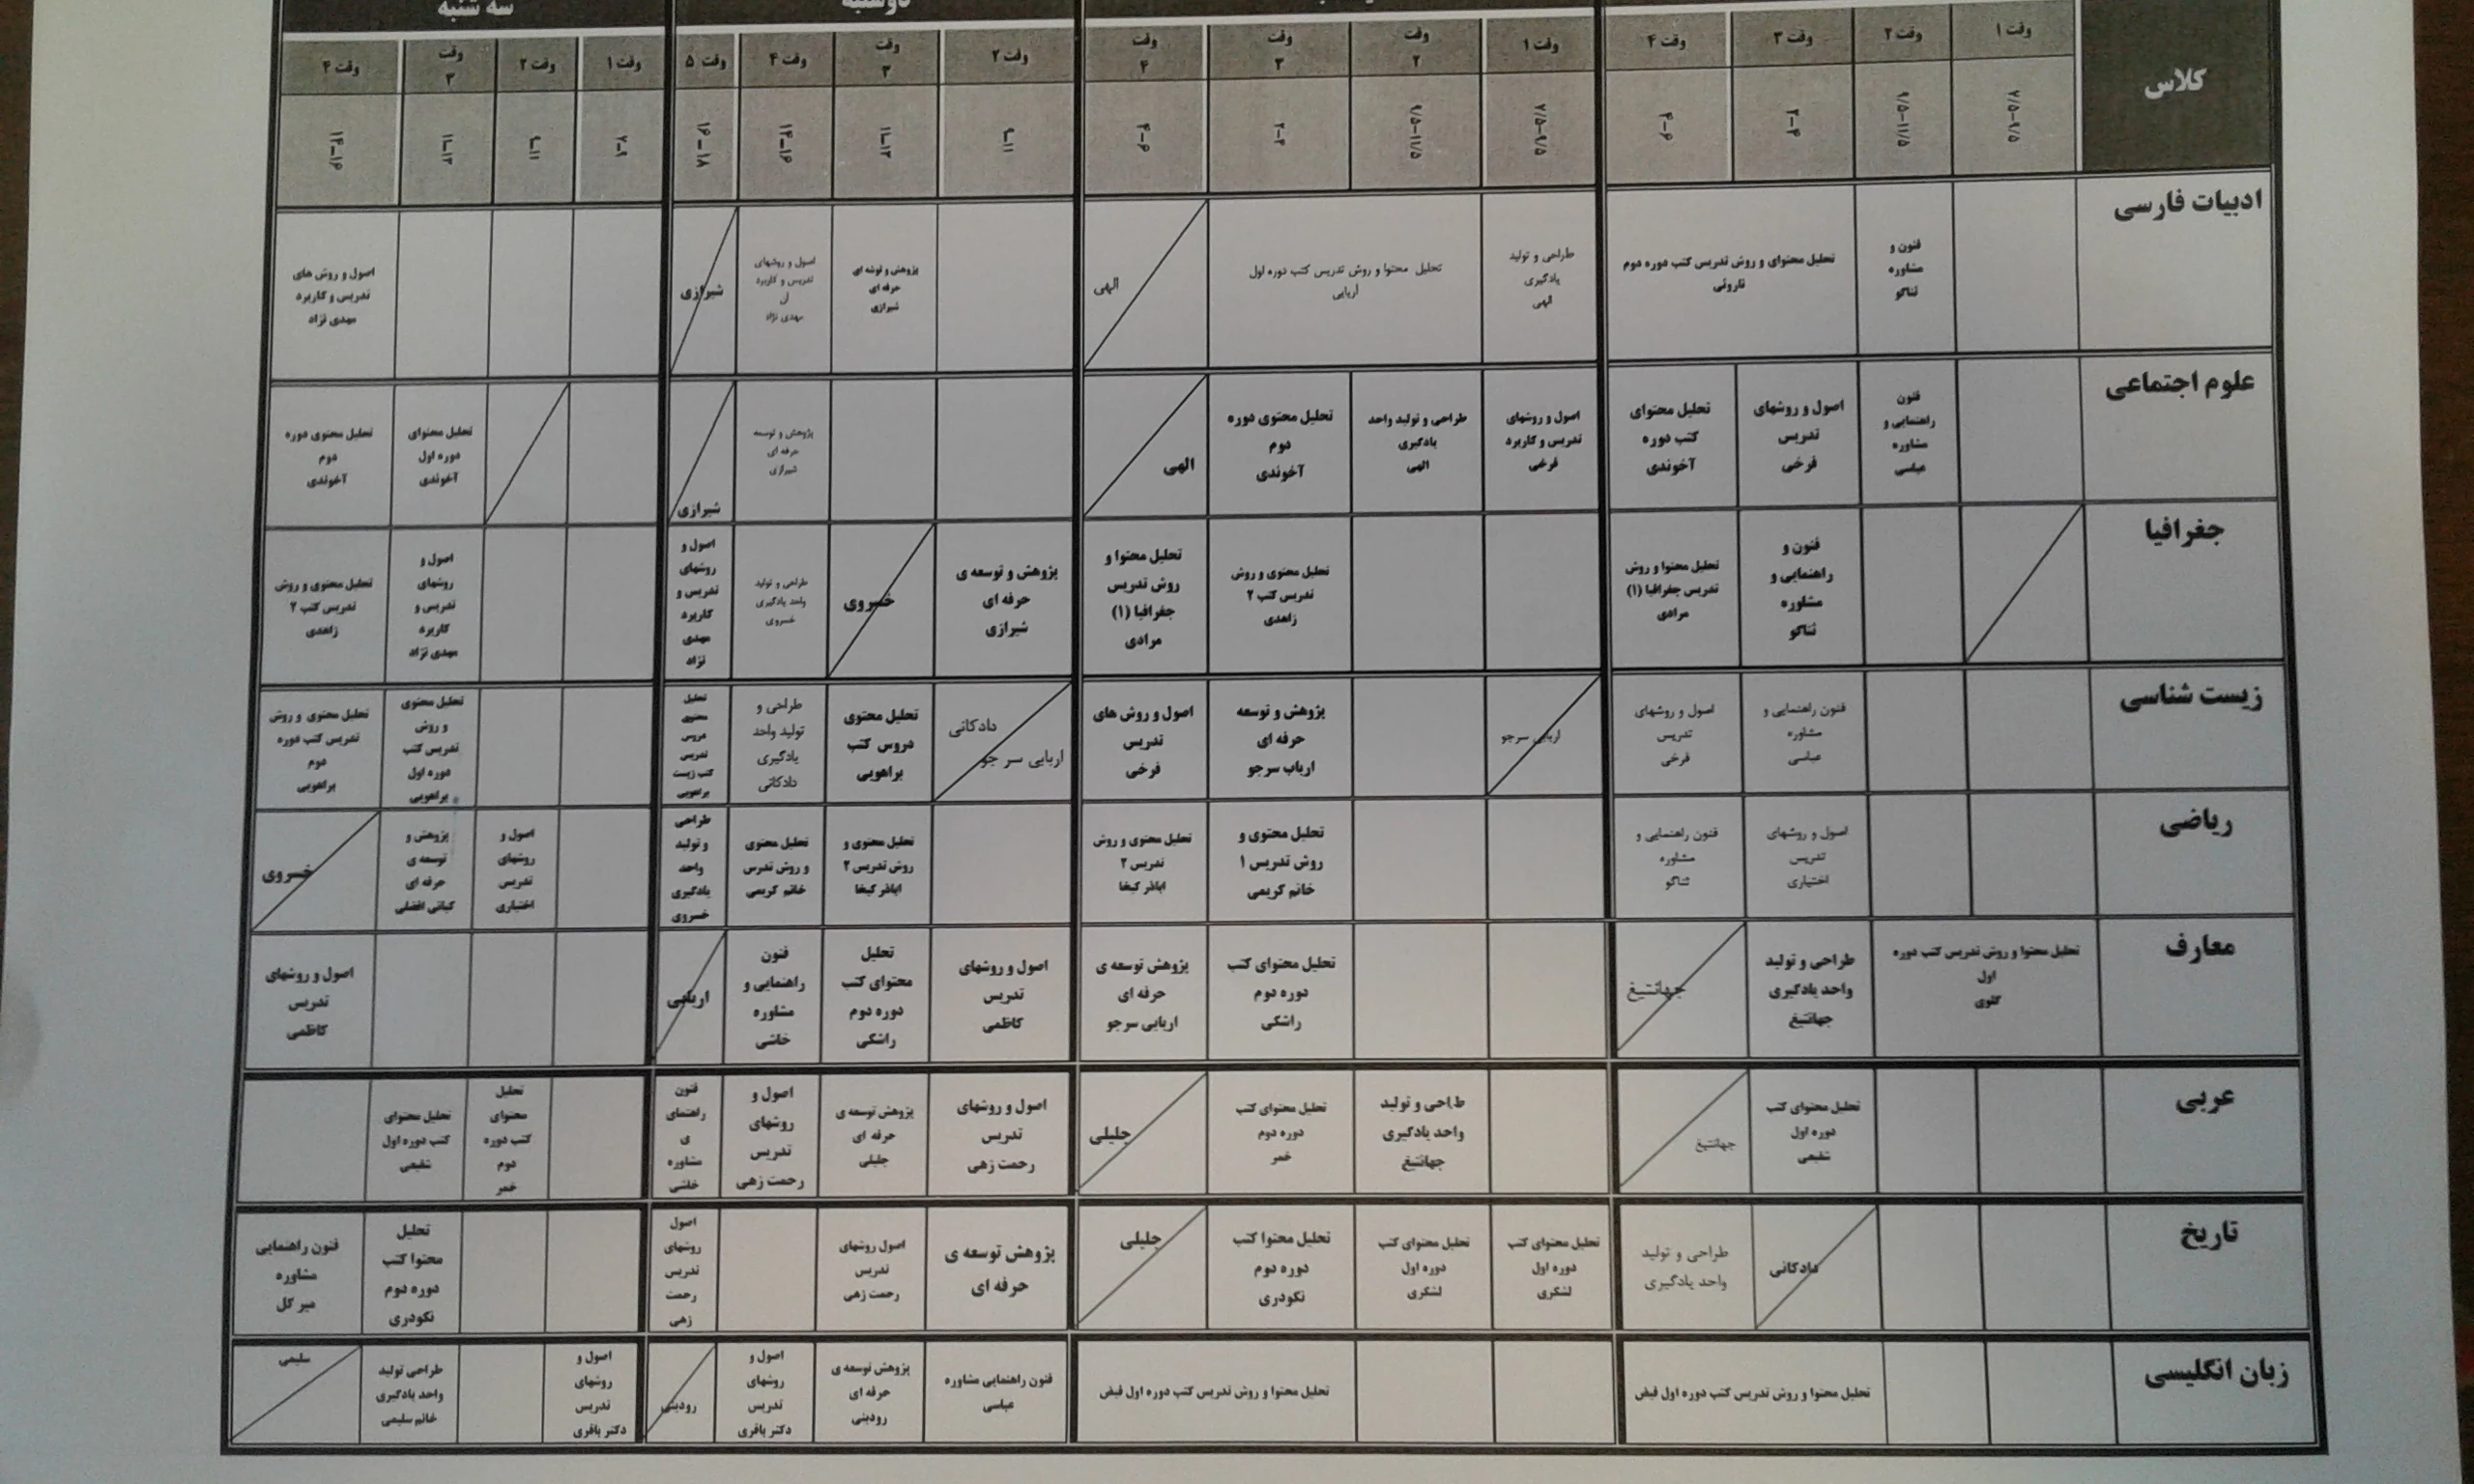 سه شنبه
دوشنبه
کلاس
وقت ۱
وقت ۲
وقت ۳
وقت ۴
وقت ۱
وقت
۲
وقت
۳
وقت
۴
وقت ۲
وقت
۳
وقت ۴
وقت ۵
وقت ۱
وقت ۲
وقت
۳
وقت ۴
۷/۵-۹/۵
۹/۵-۱۱/۵
۲-۴
۴-۶
۷/۵-۹/۵
۹/۵-۱۱/۵
۲-۴
۴-۶
۹-۱۱
۱۱-۱۳
۱۴-۱۶
۱۶-۱۸
۷-۹
۹-۱۱
۱۱-۱۳
۱۴-۱۶
ادبیات فارسی
فنون و
مشاوره
ثناگو
تحلیل محتوای و روش تدریس کتب دوره دوم
ناروئی
طراحی و تولید
یادگیری
الهی
تحلیل محتوا و روش تدریس کتب دوره اول
اربابی
الهی
پژوهش و توشه ای
حرفه ای
شیرازی
اصول و روشهای
تدریس و کاربرد
آن
مهدی نژاد
شیرازی
اصول و روش های
تدریس و کاربرد
مهدی نژاد
علوم اجتماعی
فنون
راهنمایی و
مشاوره
عباسی
اصول و روشهای
تدریس
فرخی
تحلیل محتوای
کتب دوره
آخوندی
اصول و روشهای
تدریس و کاربرد
فرخی
طراحی و تولید واحد
یادگیری
الهی
تحلیل محتوی دوره
دوم
آخوندی
الهی
پژوهش و توسعه
حرفه ای
شیرازی
شیرازی
تحلیل محتوای
دوره اول
آخوندی
تحلیل محتوی دوره
دوم
آخوندی
جغرافیا
فنون و
راهنمایی و
مشاوره
ثناگو
تحلیل محتوا و روش
تدریس جغرافیا (۱)
مرادی
تحلیل محتوی و روش
تدریس کتب ۲
زاهدی
تحلیل محتوا و
روش تدریس
جغرافیا (۱)
مرادی
پژوهش و توسعه ی
حرفه ای
شیرازی
خسروی
طراحی و تولید
واحد یادگیری
خسروی
اصول و
روشهای
تدریس و
کاربرد
مهدی
نژاد
اصول و
روشهای
تدریس و
کاربرد
مهدی نژاد
تحلیل محتوی و روش
تدریس کتب ۲
زاهدی
زیست شناسی
فنون راهنمایی و
مشاوره
عباسی
اصول و روشهای
تدریس
فرخی
اربابی سرجو
پژوهش و توسعه
حرفه ای
ارباب سرجو
اصول و روش های
تدریس
فرخی
دادکانی
اربابی سر جو
تحلیل محتوی
دروس کتب
براهویی
طراحی و
تولید واحد
یادگیری
دادکانی
تحلیل
محتوی
دروس
تدریس
کتب زیست
براهویی
تحلیل محتوی
و روش
تدریس کتب
دوره اول
براهویی
تحلیل محتوی و روش
تدریس کتب دوره
دوم
براهویی
ریاضی
اصول و روشهای
تدریس
اختیاری
فنون راهنمایی و
مشاوره
ثناگو
تحلیل محتوی و
روش تدریس ۱
خانم کریمی
تحلیل محتوی و روش
تدریس ۲
اباذر کیخا
تحلیل محتوی و
روش تدریس ۲
اباذر کیخا
تحلیل محتوی
و روش تدرس
خانم کریمی
طراحی
و تولید
واحد
یادگیری
خسروی
اصول و
روشهای
تدریس
اختیاری
پژوهش و
توسعه ی
حرفه ای
کیانی افضلی
خسروی
معارف
تحلیل محتوا و روش تدریس کتب دوره
اول
گلوی
طراحی و تولید
واحد یادگیری
جهانتیغ
جهانتیغ
تحلیل محتوای کتب
دوره دوم
راشکی
پژوهش توسعه ی
حرفه ای
اربابی سرجو
اصول و روشهای
تدریس
کاظمی
تحلیل
محتوای کتب
دوره دوم
راشکی
فنون
راهنمایی و
مشاوره
خاشی
اربابی
اصول و روشهای
تدریس
کاظمی
عربی
تحلیل محتوای کتب
دوره اول
شفیعی
جهانتیغ
طراحی و تولید
واحد یادگیری
جهانتیغ
تحلیل محتوای کتب
دوره دوم
خمر
جلیلی
اصول و روشهای
تدریس
رحمت زهی
پژوهش توسعه ی
حرفه ای
جلیلی
اصول و
روشهای
تدریس
رحمت زهی
فنون
راهنمای
ی
مشاوره
خاشی
تحلیل
محتوای
کتب دوره
دوم
خمر
تحلیل محتوای
کتب دوره اول
شفیعی
تاریخ
دادکانی
طراحی و تولید
واحد یادگیری
تحلیل محتوای کتب
دوره اول
لشگری
تحلیل محتوای کتب
دوره اول
لشگری
تحلیل محتوا کتب
دوره دوم
نکودری
جلیلی
پژوهش توسعه ی
حرفه ای
اصول روشهای
تدریس
رحمت زهی
اصول
روشهای
تدریس
رحمت
زهی
تحلیل
محتوا کتب
دوره دوم
نکودری
فنون راهنمایی
مشاوره
میر کل
زبان انگلیسی
تحلیل محتوا و روش تدریس کتب دوره اول فیض
تحلیل محتوا و روش تدریس کتب دوره اول فیض
فنون راهنمایی مشاوره
عباسی
پژوهش توسعه ی
حرفه ای
رودینی
اصول و
روشهای
تدریس
دکتر باقری
رودینی
اصول و
روشهای
تدریس
دکتر باقری
طراحی تولید
واحد یادگیری
خانم سلیمی
سلیمی